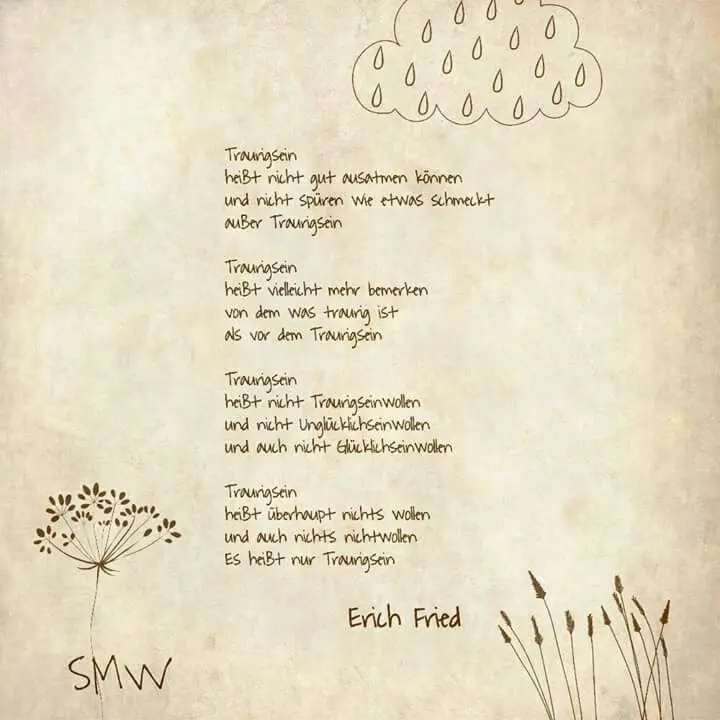 Traurigsein
heißt nicht gut ausatmen können
und nicht spüren wie etwas schmeckt
außer Traurigsein

Traurigsein
heißt vielleicht mehr bemerken
von dem was traurig ist
als vor dem Traurigsein

Traurigsein
heißt nicht Traurigseinwollen
und nicht Unglücklichseinwollen
und auch nicht Glücklichseinwollen

Traurigsein
heißt überhaupt nichts wollen
und auch nichts nichtwollen
Es heißt nur Traurigsein

Erich Fried
SMW